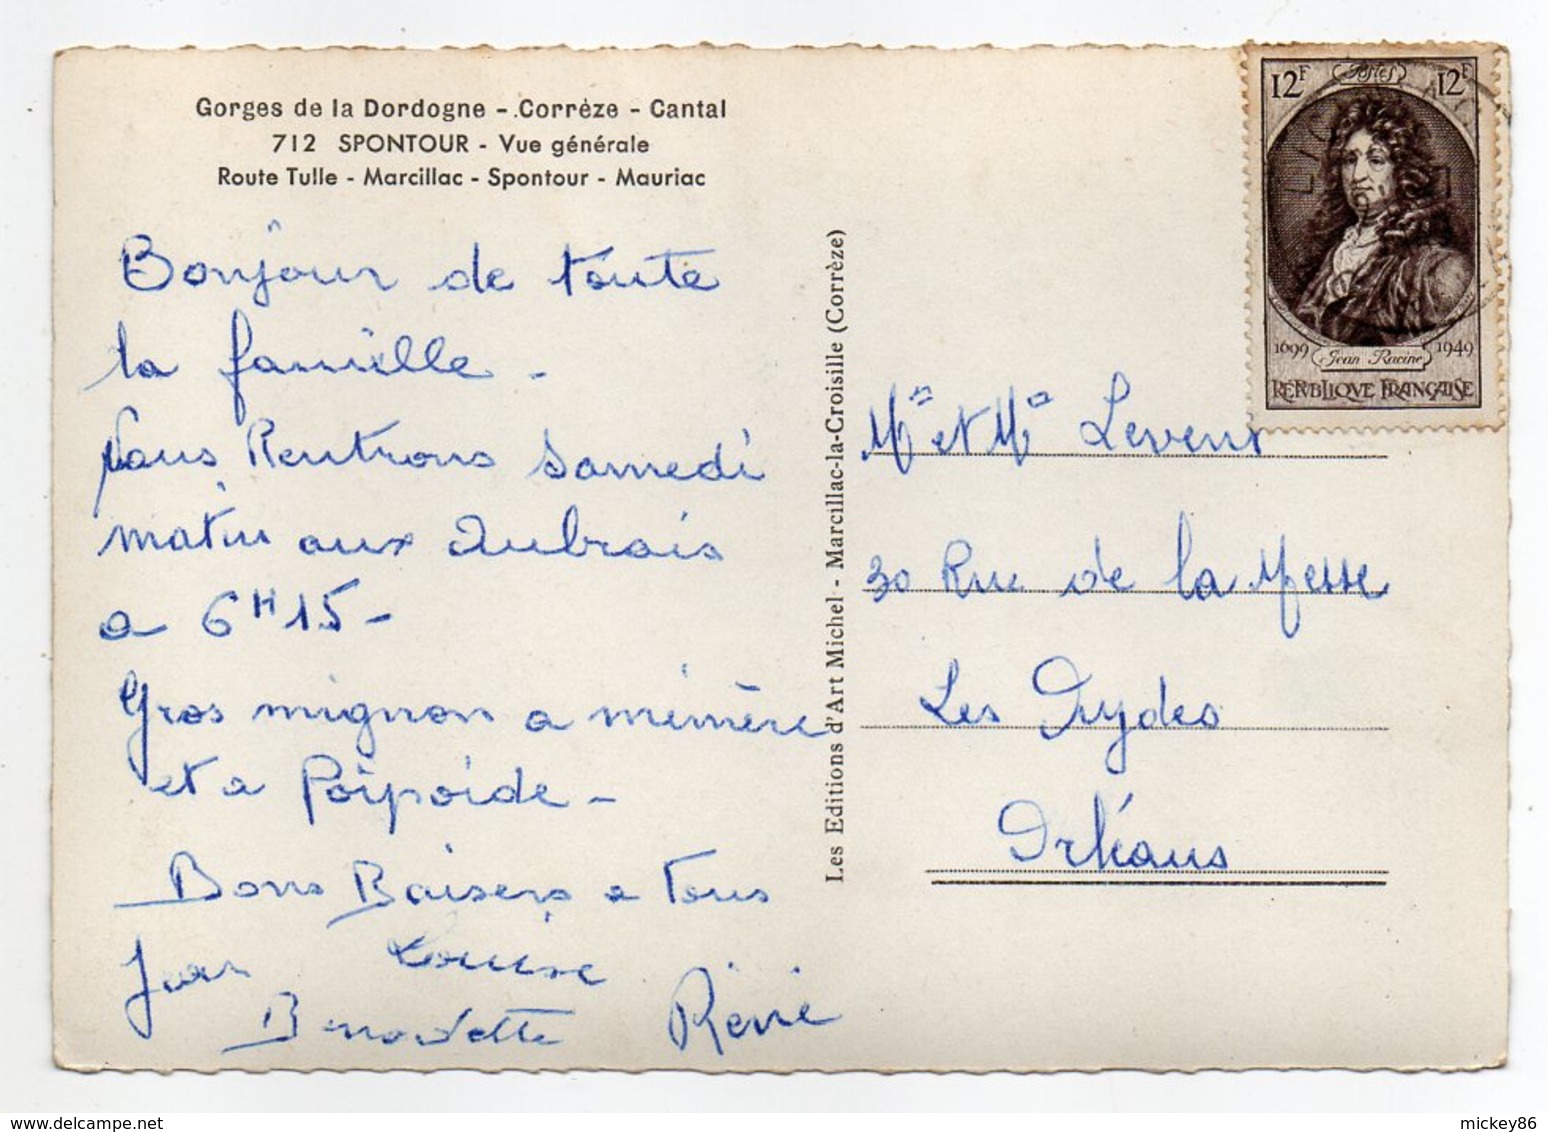 Gorges de la Dordogne - Corrèze - Cantal
712 SPONTOUR - Vue générale
Route Tulle - Marcillac - Spontour - Mauriac
Bonjour de toute
la famille -
Nous Rentrons Samedi
matin aux Aubrais
a 6H15 -
Gros mignon a mémère
et a Poipoide -
Bons Baisers a tous
Jean Louise
Bernadette René
Les Editions d'Art Michel - Marcillac-la-Croisille (Corrèze)
12F Postes 12F
1699 Jean Racine 1949
RÉPUBLIQUE FRANÇAISE
Mr et Me Levent
30 Rue de la Messe
Les Aydes
Orléans
mickey86